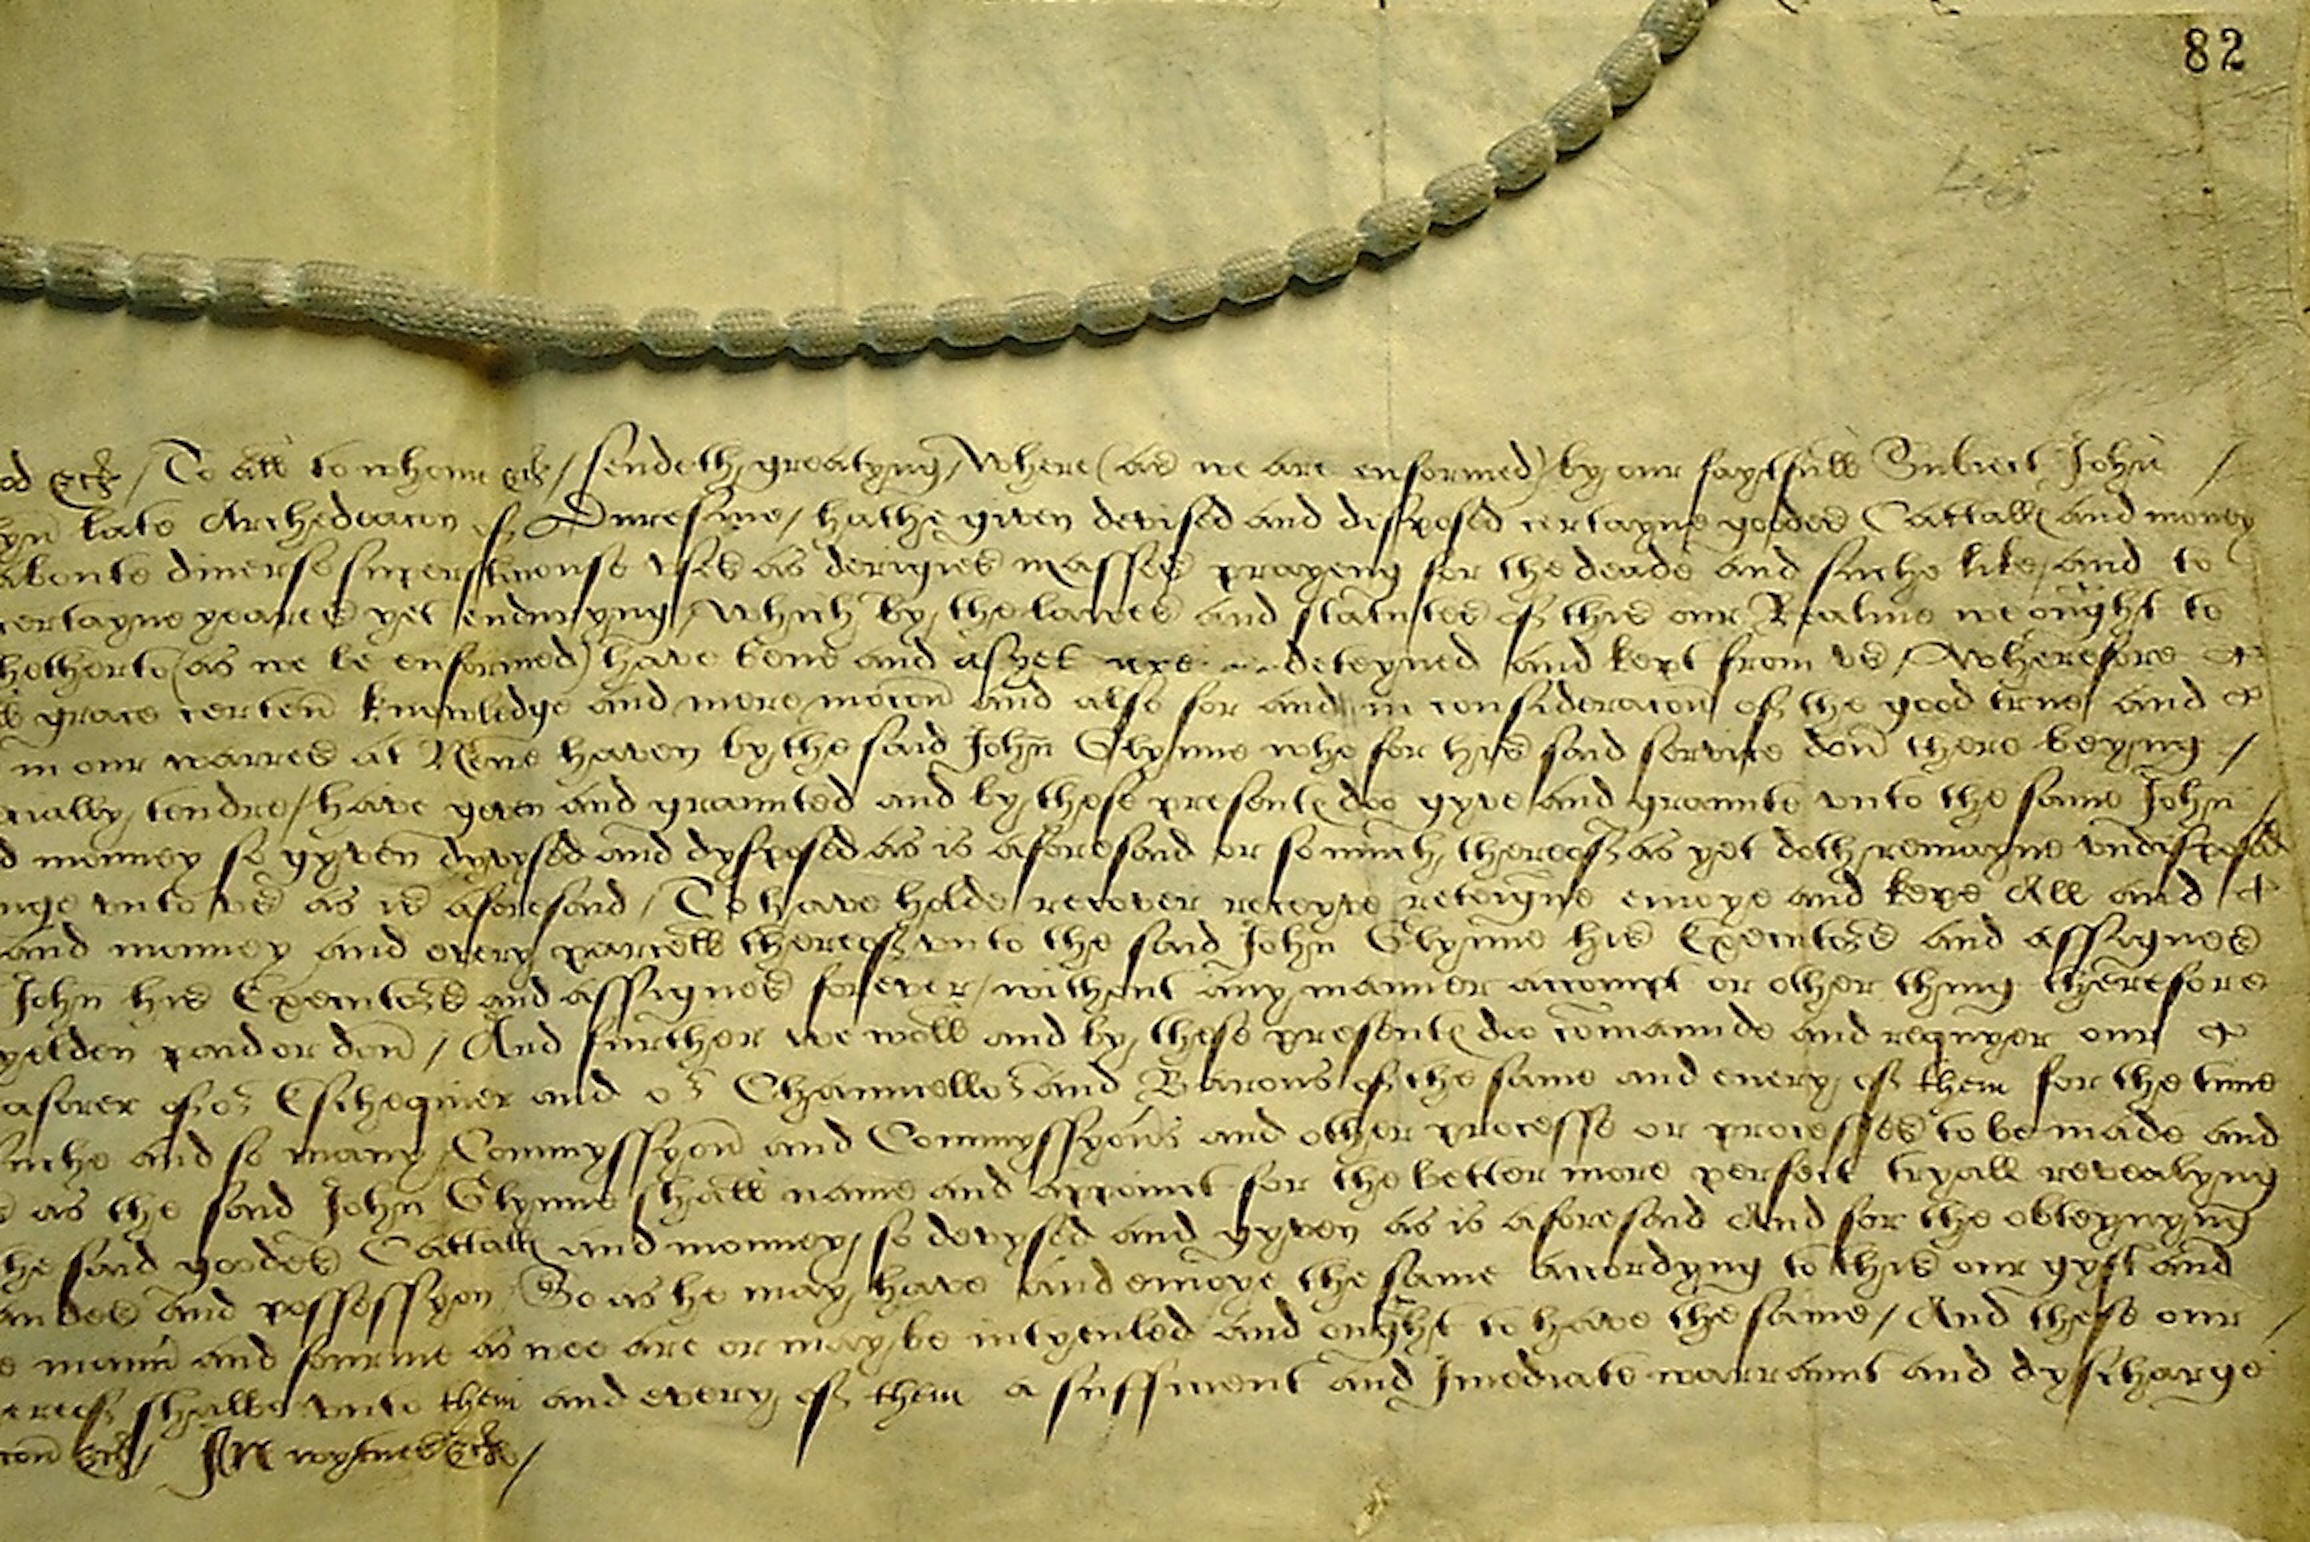 82
45
od &c / To all to whome &c / sendeth greatyng / Where (as we are enformed) by our faythfull Subiect John /
yn late Archedeacon of / hathe given devised and disposed certayne goodes Cattall and money
aboute diuerse supersticiouse uses as derigies masses prayeng for the deade and suche like / and to
certayne yeares yet enduryng / Which by the lawes and statutes of this our Realme we ought to
hetherto (as we be enformed) have bene and as yet are deteyned and kept from us / Wherefore
grace certen knowledge and mere mocon and also for and in consideracon of the good true and
in our warres at Newe haven by the said John Glynne who for his said service don there beyng /
tendre / have geven and graunted and by these presentes doo gyve and graunte unto the same John /
d monney so gyven devysed and dysposed as is aforesaid or so much thereof as yet doth remayne undisposed
nge unto us as is aforesaid / To have holde recover receyve reteigne enioye and kepe All and
and monney and every parcell thereof unto the said John Glynne his Executors and assignes
John his Executors and assignes forever / without any manner accompt or other thing therefore
yelden paid or don / And further we woll and by these presentes doo comaunde and requyer our
asorer of or Eschequier and or Chauncellor and Barons of the same and every of them for the time
suche and so many Commyssyon and Commyssyons and other processe or processes to be made and
as the said John Glynne shall name and appoint for the better more perfect tryall revealyng
he said goodes Cattall and monney so devysed and gyven as is aforesaid And for the obteynyng
and possessyon / So as he may have and enioye the same accordyng to this our gyft and
e mannr and fourme as wee are or may be intytuled and ought to have the same / And these our /
ereof shalbe unto them and every of them a sufficient and Imediate warraunt and dyscharge
con &c / In wytnes &c /